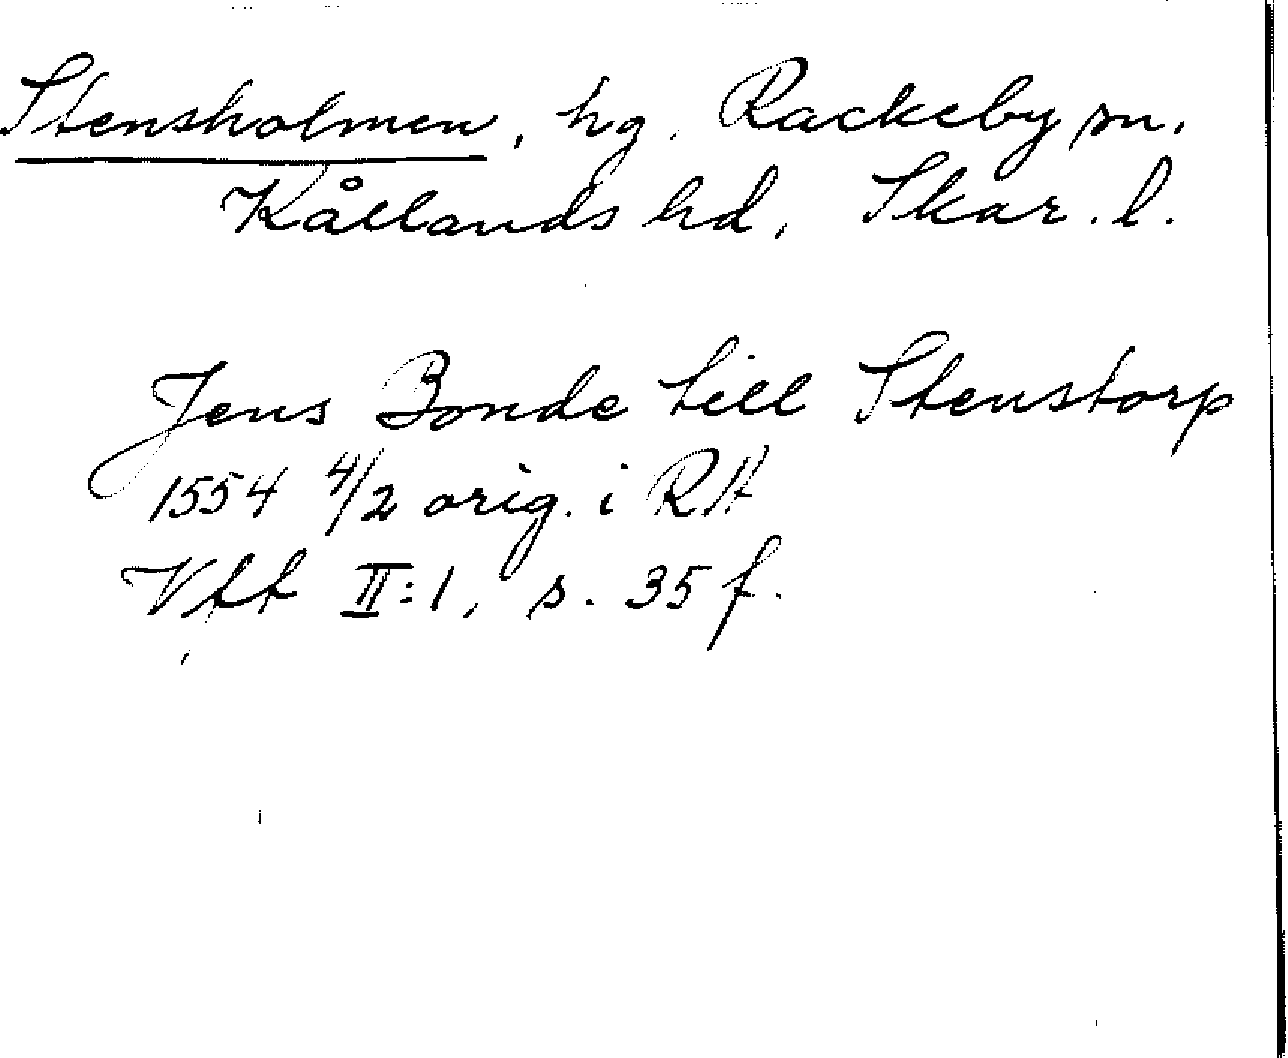 Stensholmen, hg. Rackeby sn.
Kållands hd, Skar. l.
Jens Bonde till Stenstorp
1554 4/2 orig. i RA
Vtt II:1, s. 35 f.